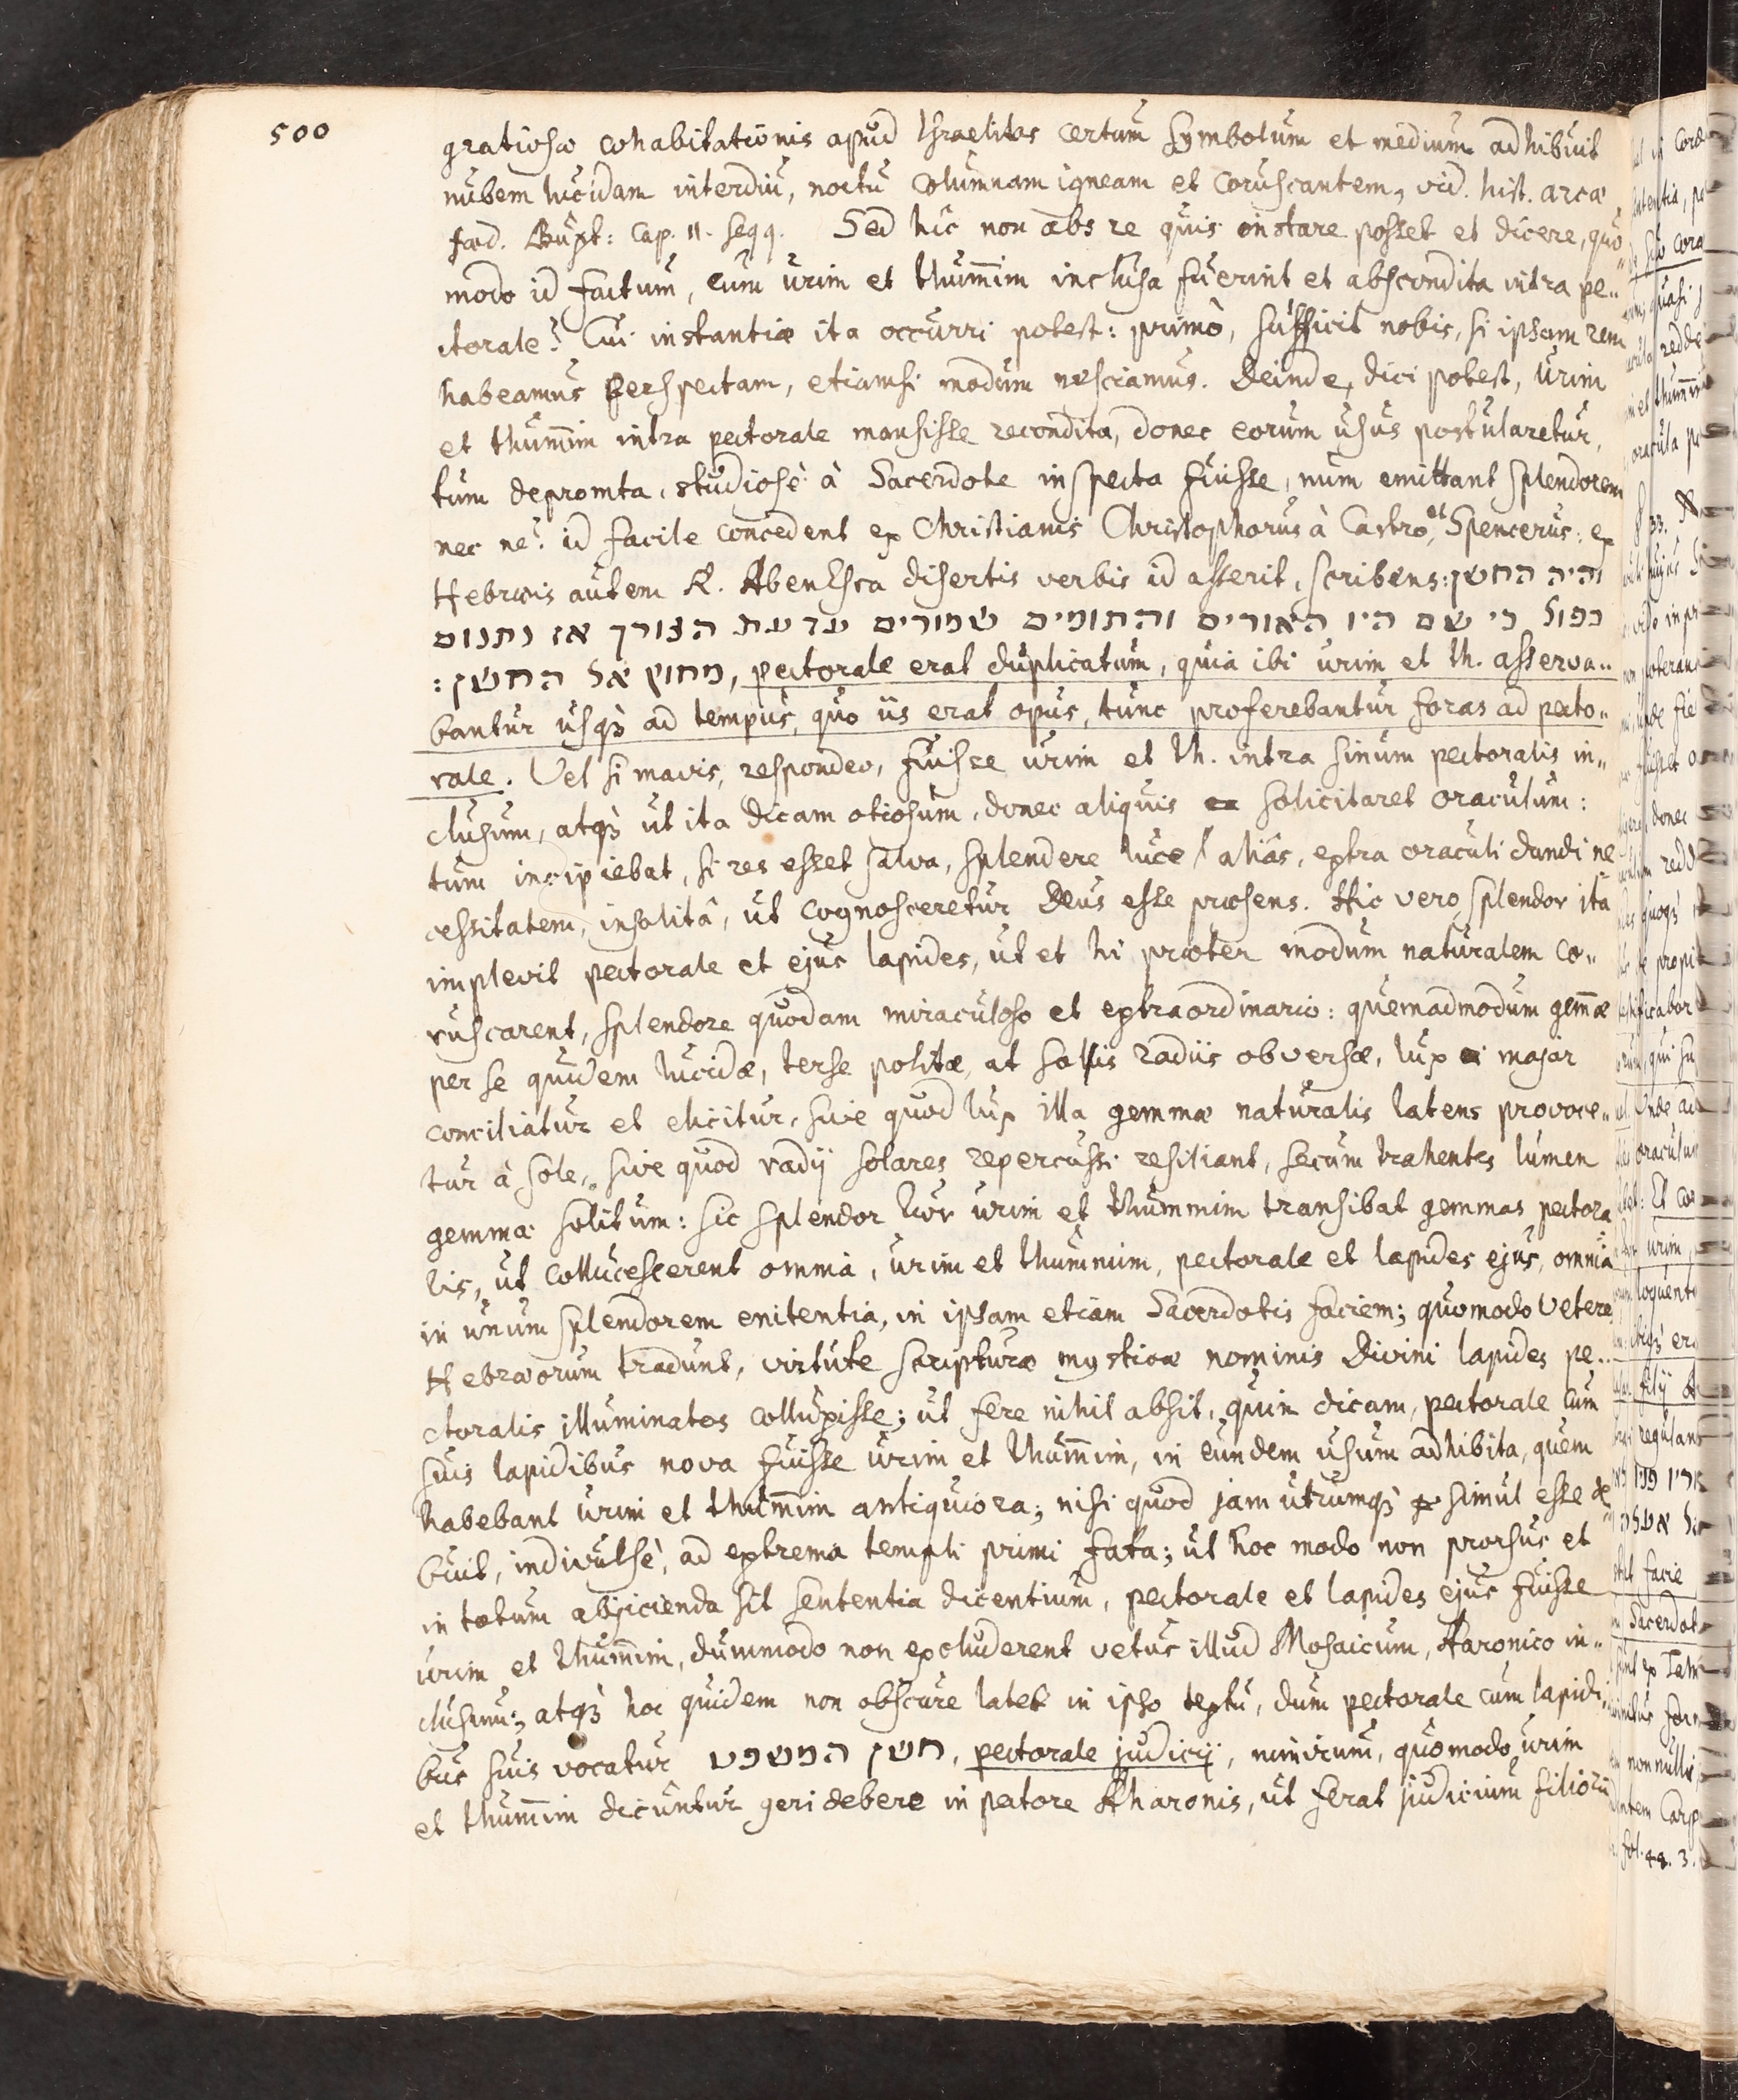 500
gratiosæ cohabitationis apud Israelitas certum symbolum et medium adhibuit
nubem lucidam interdiu, noctu columnam igneam et coruscantem, vid. hist. arcæ
fœd. Buxt: Cap. 11. seqq. Sed hic non abs re quis instare posset et dicere, quo„
modo id factum, cum urim et thum̄im inclusa fuerint et abscondita intra pe„
ctorale? Cui instantiæ ita occurri potest: primò, sufficit nobis, si ipsam rem
habeamus perspectam, etiamsi modum nesciamus. Deinde, dici potest, Urim
et thum̄im intra pectorale mansisse recondita, donec eorum usus postularetur,
tum depromta, studiosè à Sacerdote inspecta fuisse, num emittant splendorem
nec ne? id facile concedent ex Christianis Christophorus à Castro, et Spencerus: ex
Hebræis autem R. AbenEsra disertis verbis id asserit, scribens: והיה החשן
כפול כי שם היו האורים והתומים שמורים עד עת הצורך אז נתנום
מחוץ אל החשן:, pectorale erat duplicatum, quia ibi urim et th. asserva„
bantur usq̀ȝ ad tempus, quo iis erat opus, tunc proferebantur foras ad pecto„
rale. Vel si mavis, respondeo, fuisse urim et th. intra sinum pectoralis in„
clusum, atq̀ȝ ut ita dicam otiosum, donec aliquis solicitaret oraculum:
tum incipiebat, si res esset salva, splendere luce aliàs, extra oraculi dandi ne
cessitatem, insolitâ, ut cognosceretur Deus esse præsens. Hic vero splendor ita
implevit pectorale et ejus lapides, ut et hi præter modum naturalem co„
ruscarent, splendore quodam miraculoso et extraordinario: quemadmodum gem̄æ
per se quidem lucidæ, terse politæ, at solis radiis obversæ, lux major
conciliatur et elicitur, sive quod lux illa gemmæ naturalis latens provoce„
tur à sole, sive quod radij solares repercussi resiliant, secum trahentes lumen
gemmæ solitum: sic splendor hic urim et thummim transibat gemmas pectora
lis, ut collucescerent omnia, urim et thummim, pectorale et lapides ejus, omnia
in unum splendorem enitentia, in ipsam etiam Sacerdotis faciem; quomodo Vetere
Hebræorum tradunt, virtute scripturæ mysticæ nominis Divini lapides pe„
ctoralis illuminatos colluxisse; ut fere nihil absit, quin dicam, pectorale cum
suis lapidibus nova fuisse urim et thum̄im, in eundem usum adhibita, quem
habebant urim et thum̄im antiquiora; nisi quod jam utrumq̀ȝ simul esse de
buit, indivulsè, ad extrema templi primi fata; ut hoc modo non prorsus et
in totum abjicienda sit sententia dicentium, pectorale et lapides ejus fuisse
urim et thum̄im, dummodo non excluderent vetus illud Mosaicum, Aaronico in„
clusum; atq̀ȝ hoc quidem non obscure latet in ipso textu, dum pectorale cum lapidi„
bus suis vocatur חשן המשפט, pectorale judicij, nimirum, quomodo urim
et thum̄im dicuntur geri debere in pectore Aharonis, ut ferat judicium filiorū